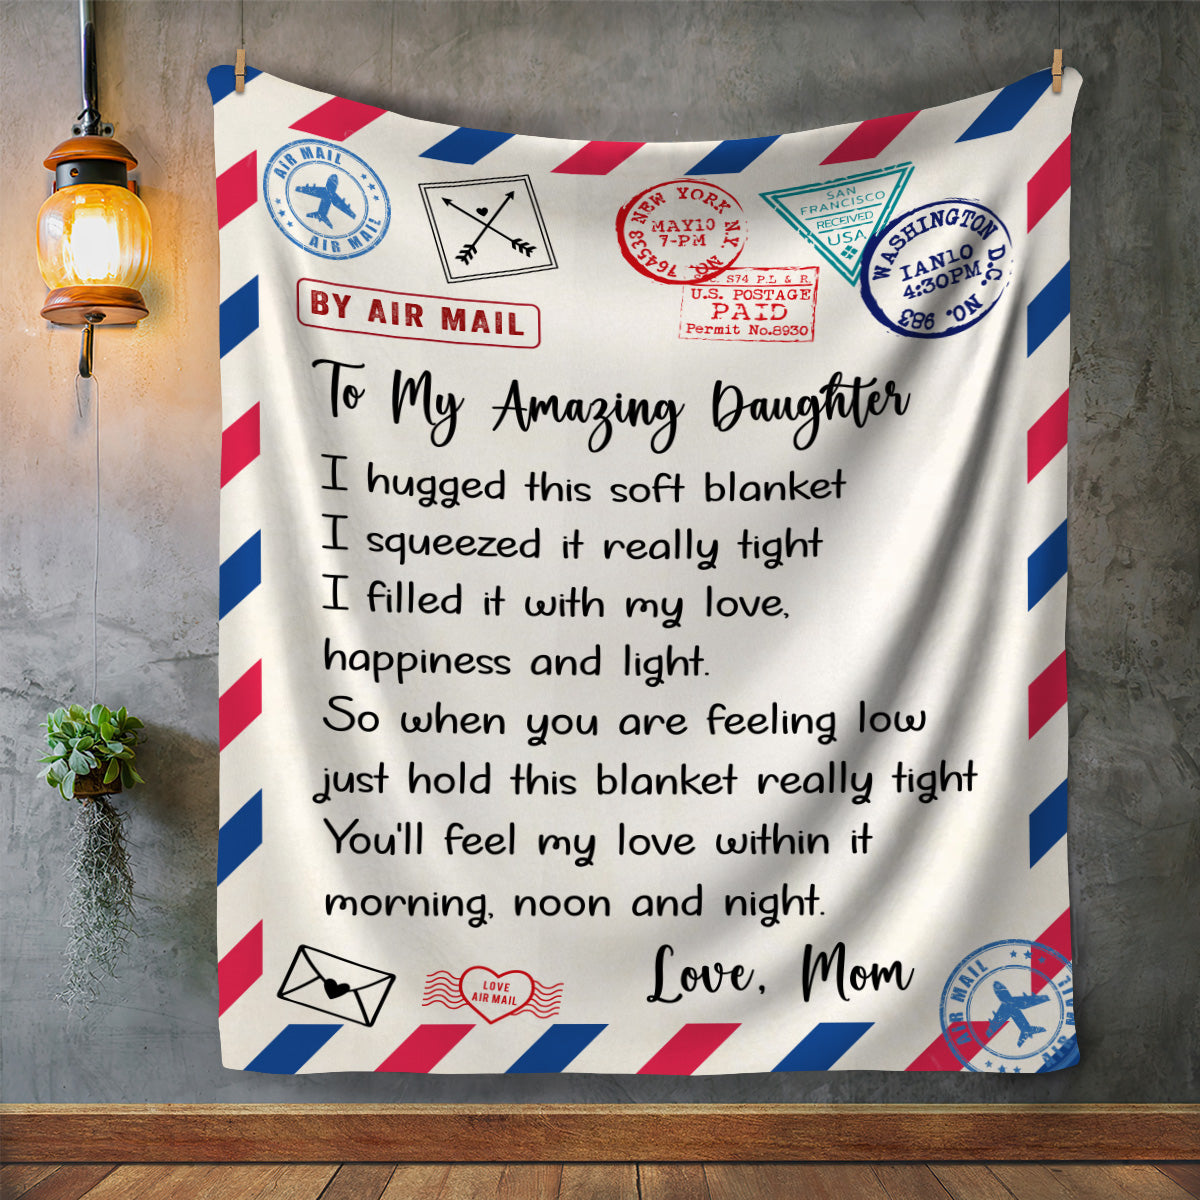 AIR MAIL
AIR MAIL
NEW YORK N.Y.
MAY10
7-PM
NO. 164538
SAN
FRANCISCO
RECEIVED
USA
WASHINGTON D.C.
IAN10
4:30PM
NO. 983
S74 P.L & R.
U.S. POSTAGE
PAID
Permit No.8930
BY AIR MAIL
To My Amazing Daughter
I hugged this soft blanket
I squeezed it really tight
I filled it with my love,
happiness and light.
So when you are feeling low
just hold this blanket really tight
You'll feel my love within it
morning, noon and night.
Love, Mom
LOVE
AIR MAIL
AIR MAIL
AIR MAIL